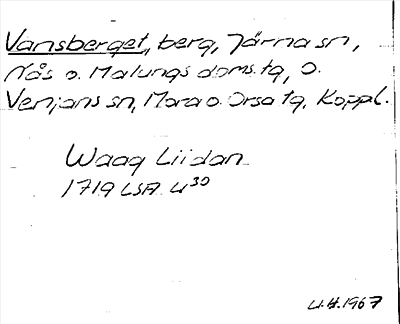 Vansberget, berg, Järna sn,
Nås o. Malungs doms. tg, o.
Venjans sn, Mora o. Orsa tg, Koppl.
Waag Liidan
1719 LSA U30
U.H. 1967